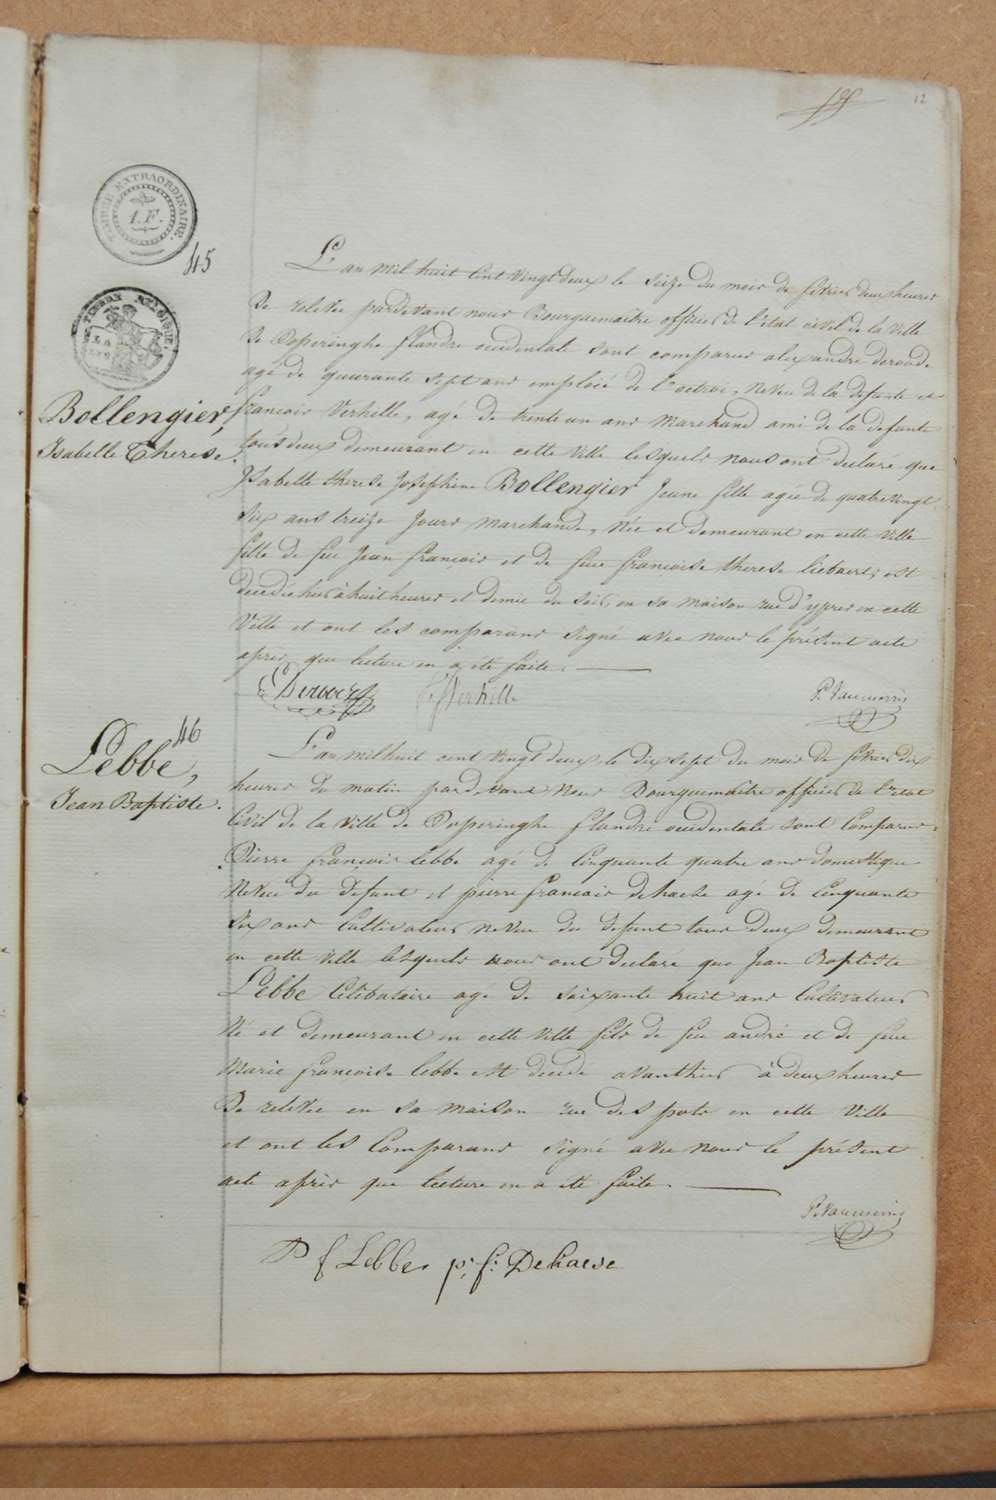 12
TIMBRE EXTRAORDINAIRE.
1.F.
45
Bollengier,
Isabelle Therese.
L'an mil huit cent vingt deux le seize du mois de fevrier deux heures
de relevée pardevant nous Bourguemaitre officier de l'état civil de la ville
de Poperinghe flandre occidentale sont comparus alexandre
agé de quarante sept ans emploié de l'octroi, neveu de la defunte et
francois Verhille, agé de trente un ans marchand ami de la defunte
tous deux demeurant en cette ville lesquels nous ont declaré que
Isabelle therese Josephine Bollengier Jeune fille agée de quatre vingt
six ans treize jours marchande, née et demeurant en cette ville
fille de feu Jean françois et de feue francoise therese liebaert, est
decedée hier à huit heures et demie du soir, en sa maison rue d'ypres en cette
ville et ont les comparans signé avec nous le présent acte
apres que lecture en a été faite.
Verhille
46
Lebbe,
Jean Baptiste.
L'an mil huit cent vingt deux le dix sept du mois de fevrier dix
heures du matin pardevant nous Bourguemaitre officier de l'etat
civil de la ville de Poperinghe flandre occidentale sont comparus
Pierre françois Lebbe agé de cinquante quatre ans domestique
neveu du defunt et pierre francois dehaese agé de cinquante
six ans cultivateur neveu du defunt tous deux demeurant
en cette ville lesquels nous ont declare que Jean Baptiste
Lebbe celibataire agé de soixante huit ans cultivateur
né et demeurant en cette ville fils de feu andré et de feue
Marie françoise lebbe est decede avanthier à deux heures
de relevée en sa maison rue des pots en cette ville
et ont les comparans signé avec nous le présent
acte après que lecture en a été faite.
P f Lebbe p: f: Dehaese